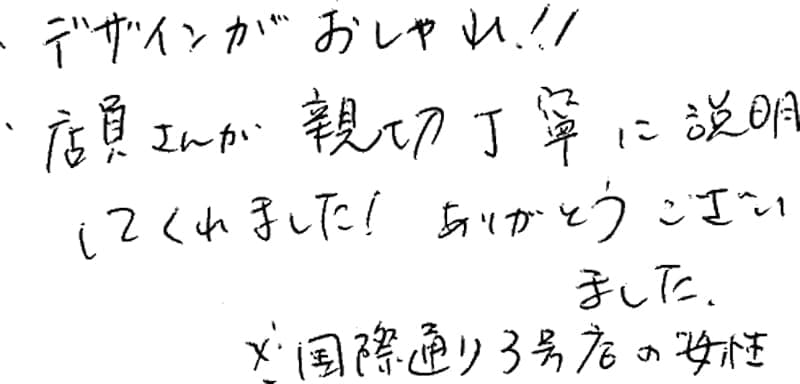 ・デザインがおしゃれ!!
・店員さんが親切丁寧に説明
してくれました! ありがとうござい
ました.
※国際通り3号店の女性